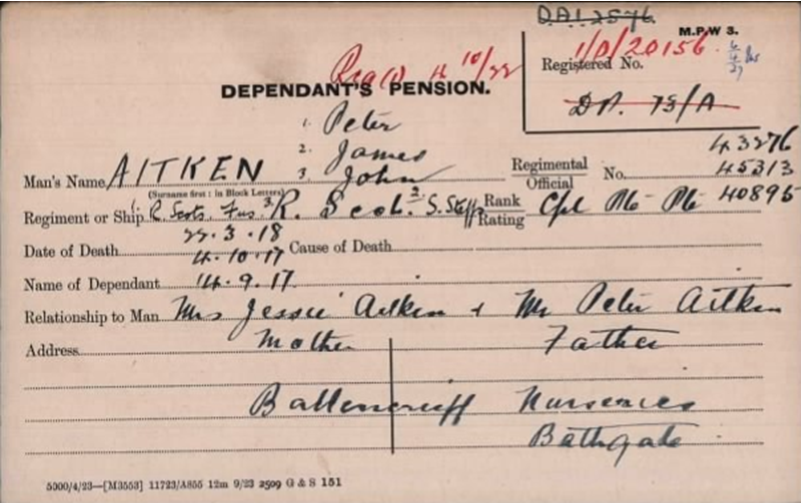 DA12576
M.P.W 3.
1/D/20156.
Registered No.
DEPENDANT'S PENSION.
DP. 73/A
1. Peter
2. James
3. John
Man's Name AITKEN
(Surname first : in Block Letters)
Regimental
Official No.
43276
45313
40895
Regiment or Ship 1 R. Scots. Fus. 3 R. Scots. 2 S. Staffs
Rank
Rating Cpl Pte Pte
Date of Death 22.3.18
4.10.17
14.9.17
Cause of Death
Name of Dependant
Relationship to Man Mrs Jessie Aitken + Mr Peter Aitken
Address Mother Father
Ballencrieff Nurseries
Bathgate
5300/4/23—[M3553] 11723/A855 12m 9/23 2599 G & S 151